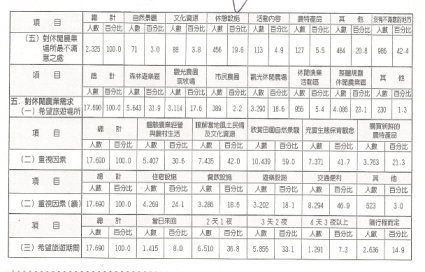 項 目 總 計 自然景觀 文化資源 休憩設施 活動內容 農特產品 其 他 沒有不滿意的地方
人數 百分比 人數 百分比 人數 百分比 人數 百分比 人數 百分比 人數 百分比 人數 百分比 人數 百分比
(五) 對休閒農業場所最不滿意之處 2.325 100.0 71 3.0 88 3.8 456 19.6 113 4.9 127 5.5 484 20.8 986 42.4
項 目 總 計 森林遊樂區 觀光農園 市民農園 觀光休閒農場 休閒漁業 活動區 整體規劃 休閒農業區 其 他
人數 百分比 人數 百分比 人數 百分比 人數 百分比 人數 百分比 人數 百分比 人數 百分比 人數 百分比
五. 對休閒農業需求
(一) 希望旅遊場所 17.690 100.0 5.643 31.9 3.114 17.6 389 2.2 3.290 18.6 955 5.4 4.086 23.1 230 1.3
項 目 總 計 體驗農業經營與農村生活 瞭解當地風土民情及文化資源 欣賞田園自然景觀 充實生態保育觀念 購買新鮮的農特產品
人數 百分比 人數 百分比 人數 百分比 人數 百分比 人數 百分比 人數 百分比
(二) 重視因素 17.690 100.0 5.407 30.6 7.435 42.0 10.439 59.0 7.371 41.7 3.763 21.3
項 目 總 計 住宿設施 餐飲設施 遊樂設施 交通便利 其 他
人數 百分比 人數 百分比 人數 百分比 人數 百分比 人數 百分比 人數 百分比
(二) 重視因素 (續) 17.690 100.0 4.269 24.1 3.286 18.6 3.202 18.1 8.294 46.9 523 3.0
項 目 總 計 當日來回 2 天 1 夜 3 天 2 夜 4 天 3 夜以上 隨行程而定
人數 百分比 人數 百分比 人數 百分比 人數 百分比 人數 百分比 人數 百分比
(三) 希望旅遊期間 17.690 100.0 1.415 8.0 6.510 36.8 5.855 33.1 1.291 7.3 2.636 14.9